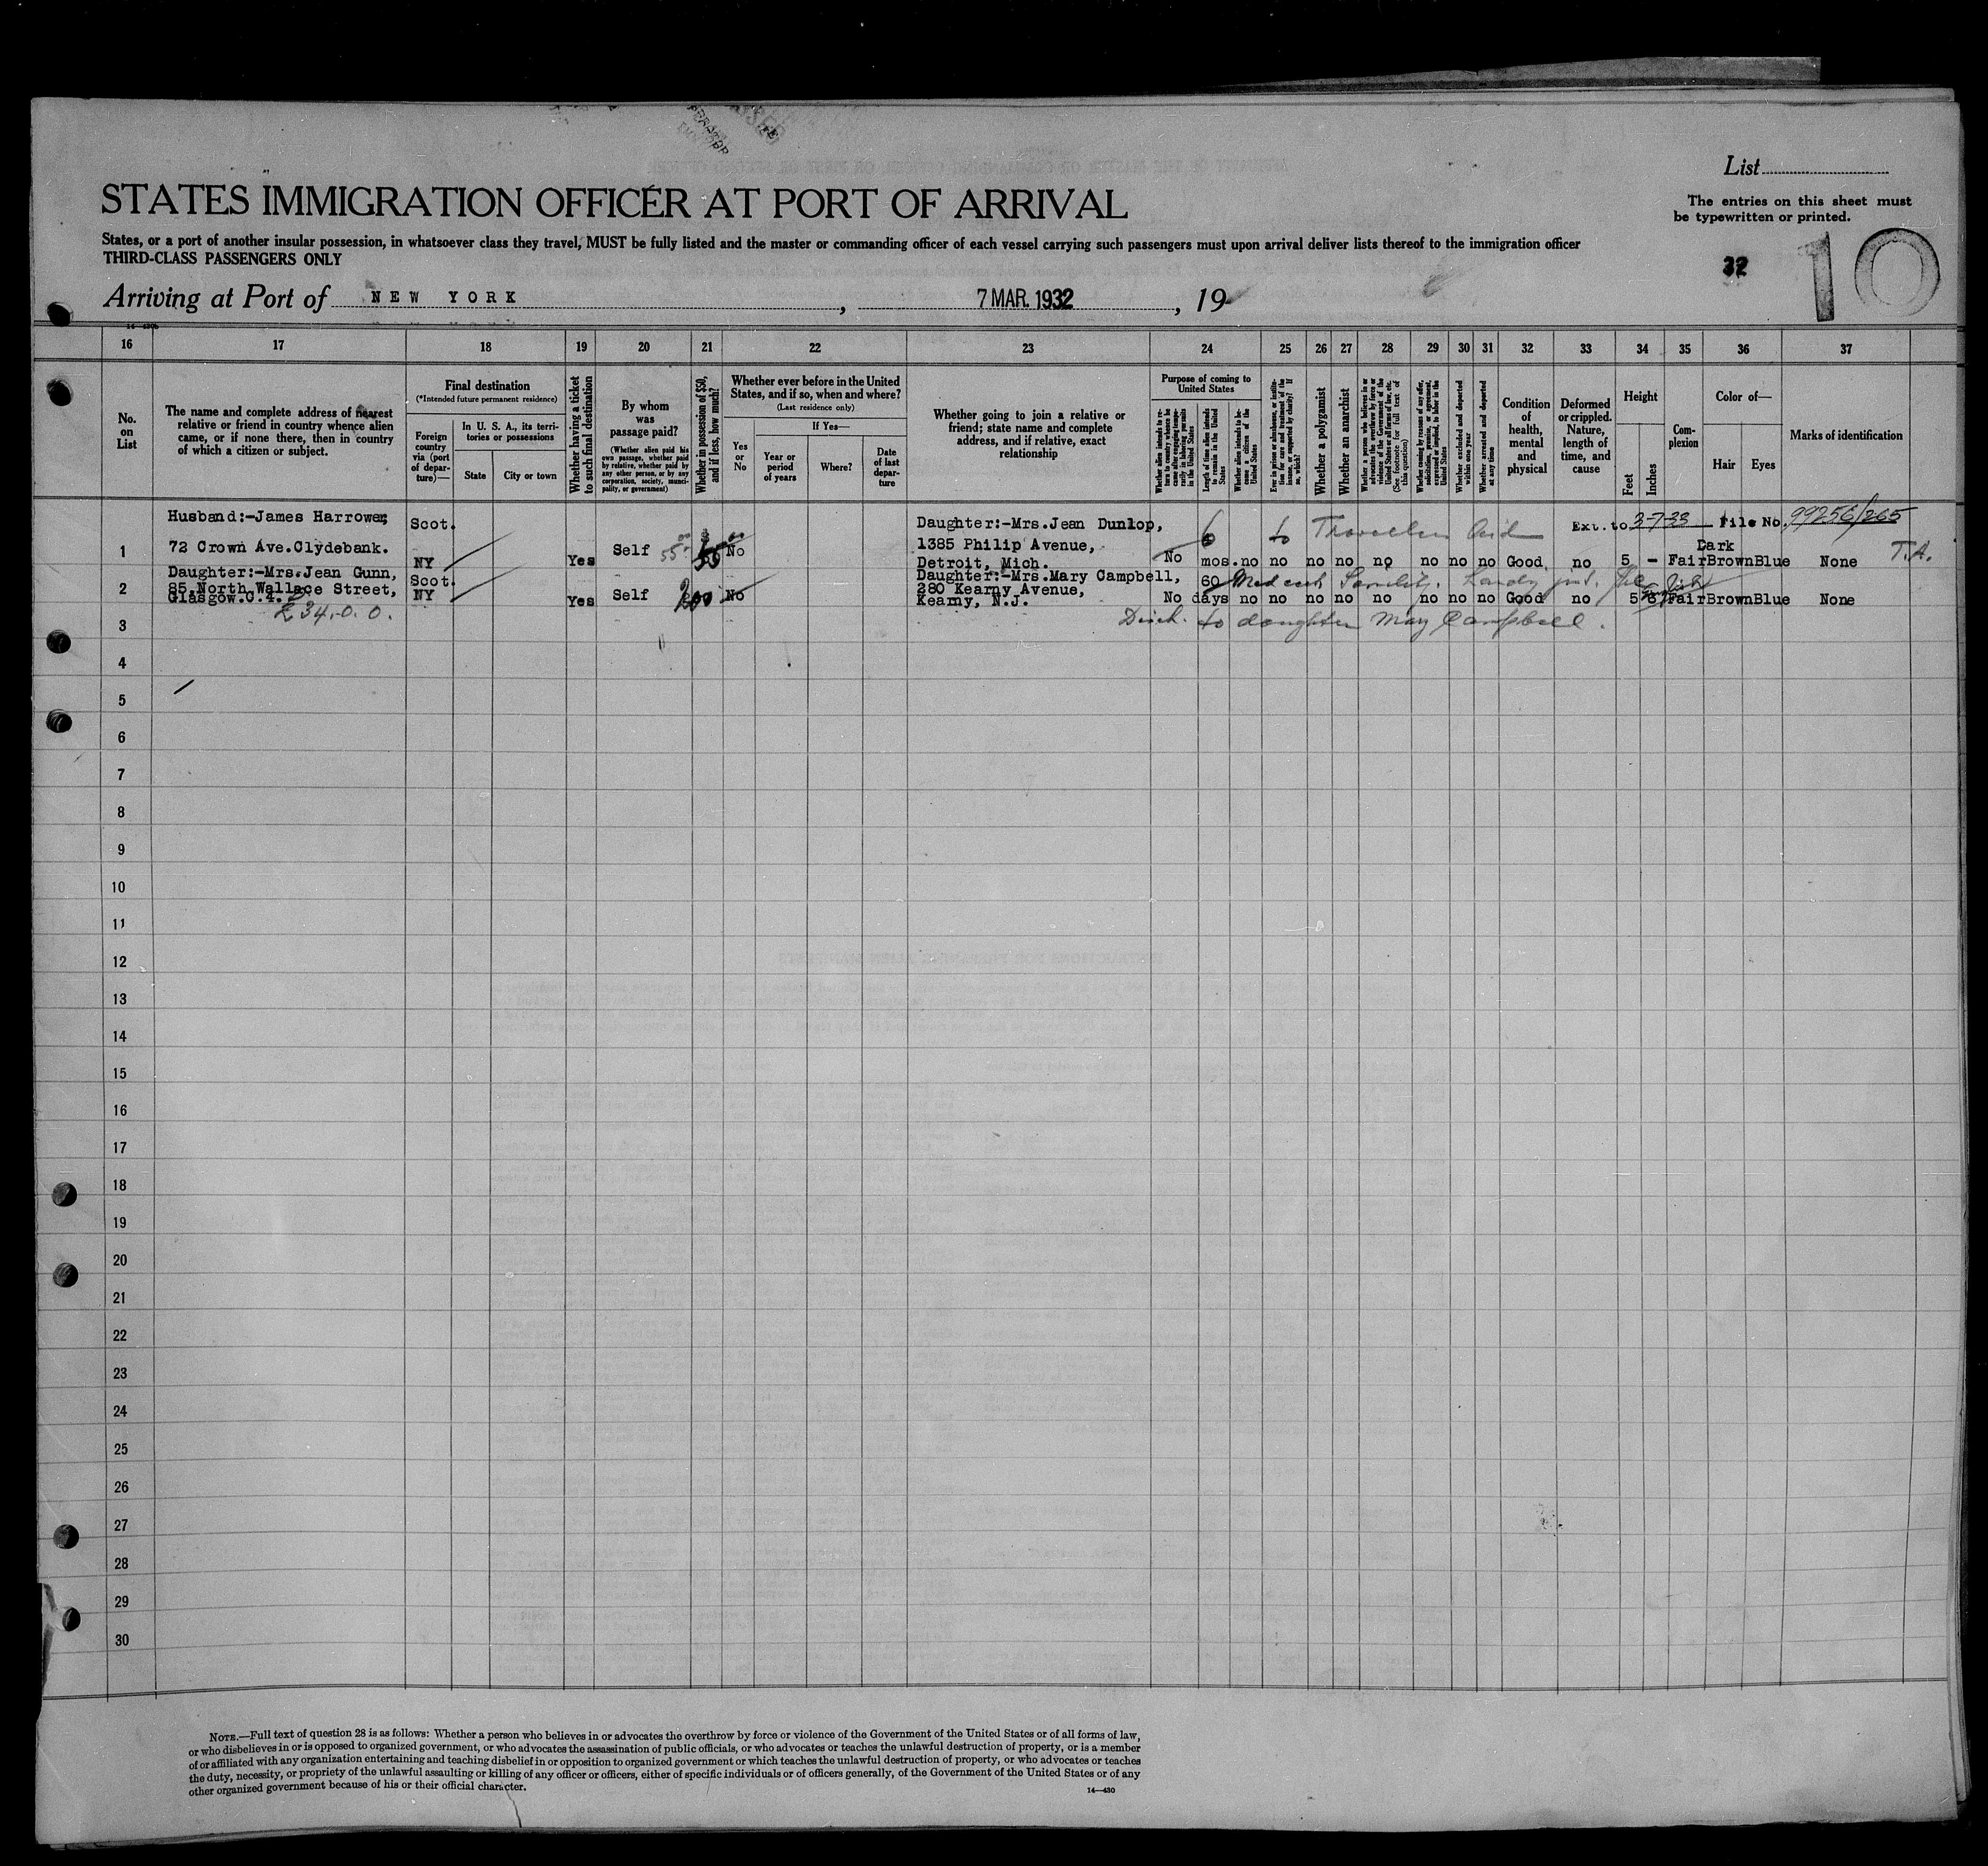 List
STATES IMMIGRATION OFFICER AT PORT OF ARRIVAL
The entries on this sheet must
be typewritten or printed.
States, or a port of another insular possession, in whatsoever class they travel, MUST be fully listed and the master or commanding officer of each vessel carrying such passengers must upon arrival deliver lists thereof to the immigration officer
THIRD-CLASS PASSENGERS ONLY
32
10
Arriving at Port of NEW YORK, 7 MAR. 1932, 19
14—430b
16 17 18 19 20 21 22 23 24 25 26 27 28 29 30 31 32 33 34 35 36 37
No.
on
List
The name and complete address of nearest
relative or friend in country whence alien
came, or if none there, then in country
of which a citizen or subject.
Final destination
(*Intended future permanent residence)
Foreign
country
via (port
of depar-
ture)—
In U. S. A., its terri-
tories or possessions
State
City or town
Whether having a ticket
to such final destination
By whom
was
passage paid?
(Whether alien paid his
own passage, whether paid
by relative, whether paid by
any other person, or by any
corporation, society, munici-
pality, or government)
Whether in possession of $50,
and if less, how much?
Whether ever before in the United
States, and if so, when and where?
(Last residence only)
Yes
or
No
If Yes—
Year or
period
of years
Where?
Date
of last
depar-
ture
Whether going to join a relative or
friend; state name and complete
address, and if relative, exact
relationship
Purpose of coming to
United States
Whether alien intends to re-
turn to country whence he
came after engaging tempo-
rarily in laboring pursuits
in the United States
Length of time alien intends
to remain in the United
States
Whether alien intends to be-
come a citizen of the
United States
Ever in prison or almshouse, or institu-
tion for care and treatment of the
insane, or supported by charity? If
so, which?
Whether a polygamist
Whether an anarchist
Whether a person who believes in or
advocates the overthrow by force or
violence of the Government of the
United States or all forms of law, etc.
(See footnote for full text of
this question)
Whether coming by reasons of any offer,
solicitation, promise, or agreement,
expressed or implied, to labor in the
United States
Whether excluded and deported
within one year
Whether arrested and deported
at any time
Condition
of
health,
mental
and
physical
Deformed
or crippled.
Nature,
length of
time, and
cause
Height
Feet
Inches
Com-
plexion
Color of—
Hair
Eyes
Marks of identification
Husband:-James Harrower,
Scot.
Daughter:-Mrs.Jean Dunlop,
6 to Travellers Aid
Ext. to 3-7-33 File No. 99256/265
1 72 Crown Ave.Clydebank.
NY Yes Self 55 50 No
1385 Philip Avenue,
Detroit, Mich.
No mos. no no no no no no no no Good no 5 - Dark Fair Brown Blue None T.A.
Daughter:-Mrs.Jean Gunn,
Scot.
Daughter:-Mrs.Mary Campbell,
60 Med cert
2 85 North Wallace Street,
NY Yes Self 200 No
280 Kearny Avenue,
Glasgow.C.4.
Kearny, N.J.
No days no no no no no no no no Good no 5 3 Fair Brown Blue None
£34.0.0.
3
Disch. to daughter Mary Campbell.
4
5
6
7
8
9
10
11
12
13
14
15
16
17
18
19
20
21
22
23
24
25
26
27
28
29
30
NOTE.—Full text of question 28 is as follows: Whether a person who believes in or advocates the overthrow by force or violence of the Government of the United States or of all forms of law,
or who disbelieves in or is opposed to organized government, or who advocates the assassination of public officials, or who advocates or teaches the unlawful destruction of property, or is a member
of or affiliated with any organization entertaining and teaching disbelief in or opposition to organized government or which teaches the unlawful destruction of property, or who advocates or teaches
the duty, necessity, or propriety of the unlawful assaulting or killing of any officer or officers, either of specific individuals or of officers generally, of the Government of the United States or of any
other organized government because of his or their official character.
14—430